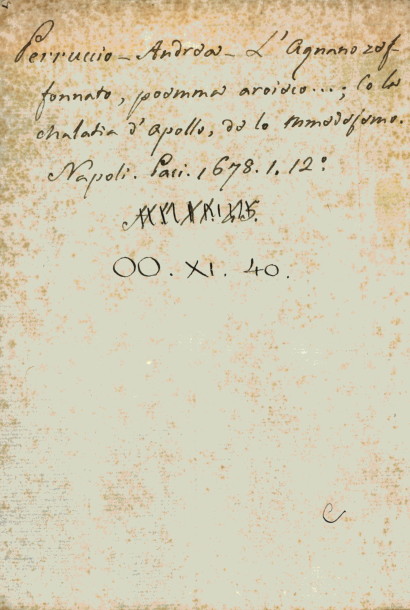 Perruccio - Andrea - L'Agnano zef-
fonnato, poemma aroieco...; Co la
chalatia d'Apollo, de lo mmedesemo.
Napoli. Paci. 1678. 1. 12º
OO. XI. 40.
C